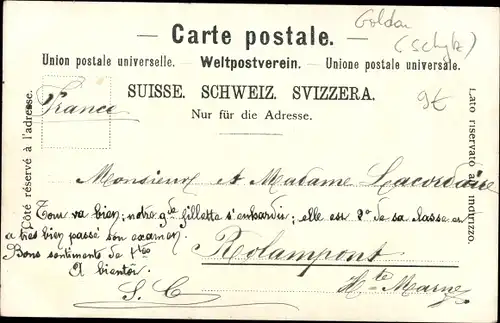 Goldau
(Schytz)
— Carte postale. —
Union postale universelle. — Weltpostverein. — Unione postale universale.
SUISSE. SCHWEIZ. SVIZZERA.
9€
France
Nur für die Adresse.
Côté réservé à l'adresse.
Lato riservato all'indirizzo.
Monsieur et Madame Lacordaire
Tout va bien; notre gde fillette s'enhardit; elle est 2e de sa classe et
a très bien passé son examen.
Bons sentiments de tous
A bientôt
S. C.
Rolampont
Hte Marne